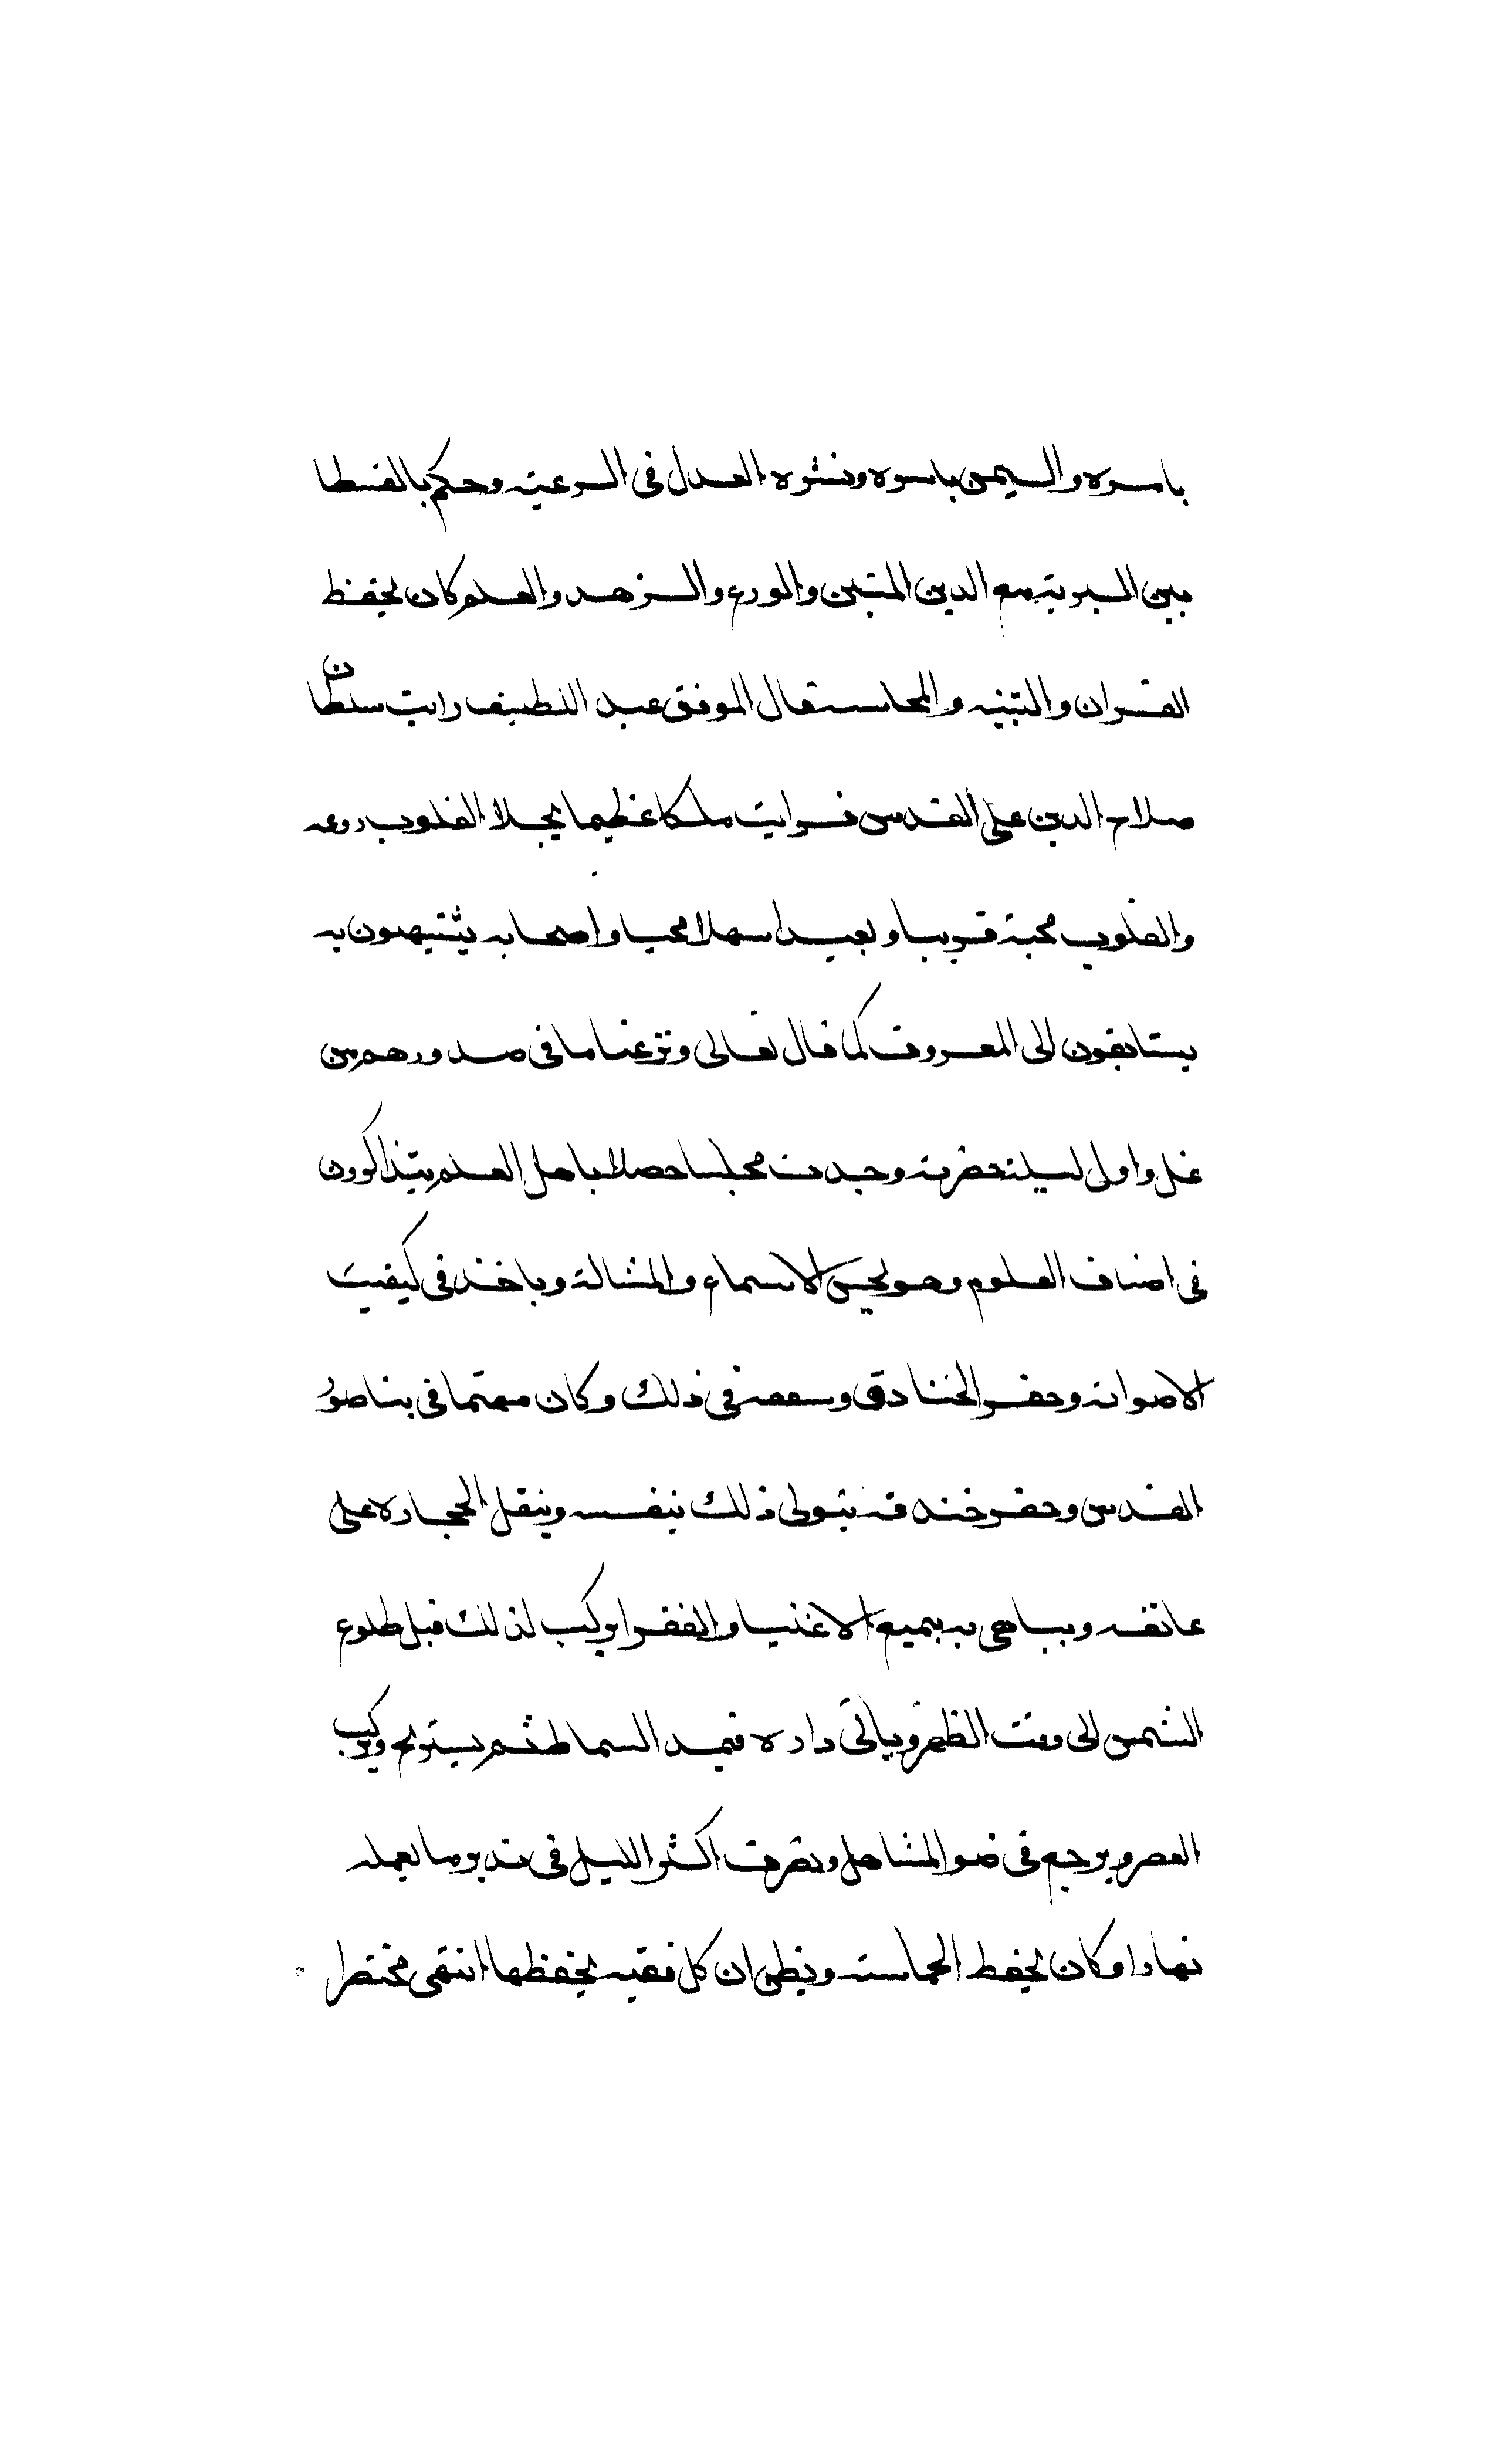 باسره واليمن باسره ونشره العدل في الرعية وحكم بالقسطا
بين البرية مع الدين المتين والورع والزهد والعلم كان يحفظ
القران والتنبيه والحماسة قال الموفق عبد اللطيف رايت سلطان
صلاح الدين على القدس فرايت ملكا عظيما يجلا القلوب روعه
والقلوب محبة قريبا وبعيدا سهلا محببا واصحابه يتشبهون به
يستابقون الى المعروف كما قال تعالى ونزعنا ما في صدورهم من
غل واول ليلة حضرته وجدت مجلسا حصلا باهل العلم يتذاكرون
في اصناف العلوم وهو يحسن الاسماع والمشالة وياخذ في كيفية
الاصوانه وحفر الخنادق وسععه في ذلك وكان مهتما في بنا صور
القدس وحفر خندقه يتولى ذلك بنفسه وينقل الحجاره على
عاتقه ويباهي به جميع الاغنيا والفقرا يركب لذلك قبل طلوع
الشمس الى وقت الظهر وياتي داره فيمد السماط ثم يستريح ويركب
العصر ويرجع في ضو المشاهل ويصرف اكثر الليل في تدبير ما يعمله
نهارا وكان يحفظ الحماسة ويظن ان كل فقيه يحفظها انتهى مختصرا